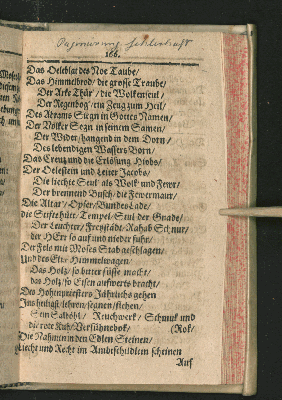 Paginierung fehlerhaft
166.
Das Oeleblat des Noe Taube/
Das Himmelbrod/ die grosse Traube/
Der Arke Thür/ die Wolkenseul/
Der Regenbog/ ein Zeug zum Heil/
Des Abrams Segn in Gottes Namen/
Der Völker Segn in seinem Samen/
Der Wider/ hangend in dem Dorn/
Des lebendigen Wassers Born/
Das Creutz und die Erlösung Hiobs/
Der Oelestein und Leiter Jacobs/
Die liechte Seul als Wolk und Feuer/
Der brennend Busch/ die Fewermauer/
Die Altar/ Opfer/ BundesLade/
die Stiftshütt/ Tempel/ Stul der Gnade/
Der Leuchter/ Freystädt/ Rahab Schnur/
der HErr so auf und nieder fuhr/
Der Fels mit Moses Stab geschlagen/
Und des Eliæ Himmelwagen/
Das Holtz/ so bitter süsse macht/
das Holz/ so Eisen aufwerts bracht/
Des Hohenpriesters Jährlichs gehen
Ins heiligst/ lehren/ segnen/ stehen/
Sein Salböhl/ Reuchwerk/ Schmuk und
die rote Kuh/ Versühnebok/ (Rok/
Die Nahmen in den Edlen Steinen/
Liecht und Recht im Ambtschildlein scheinen
Auf